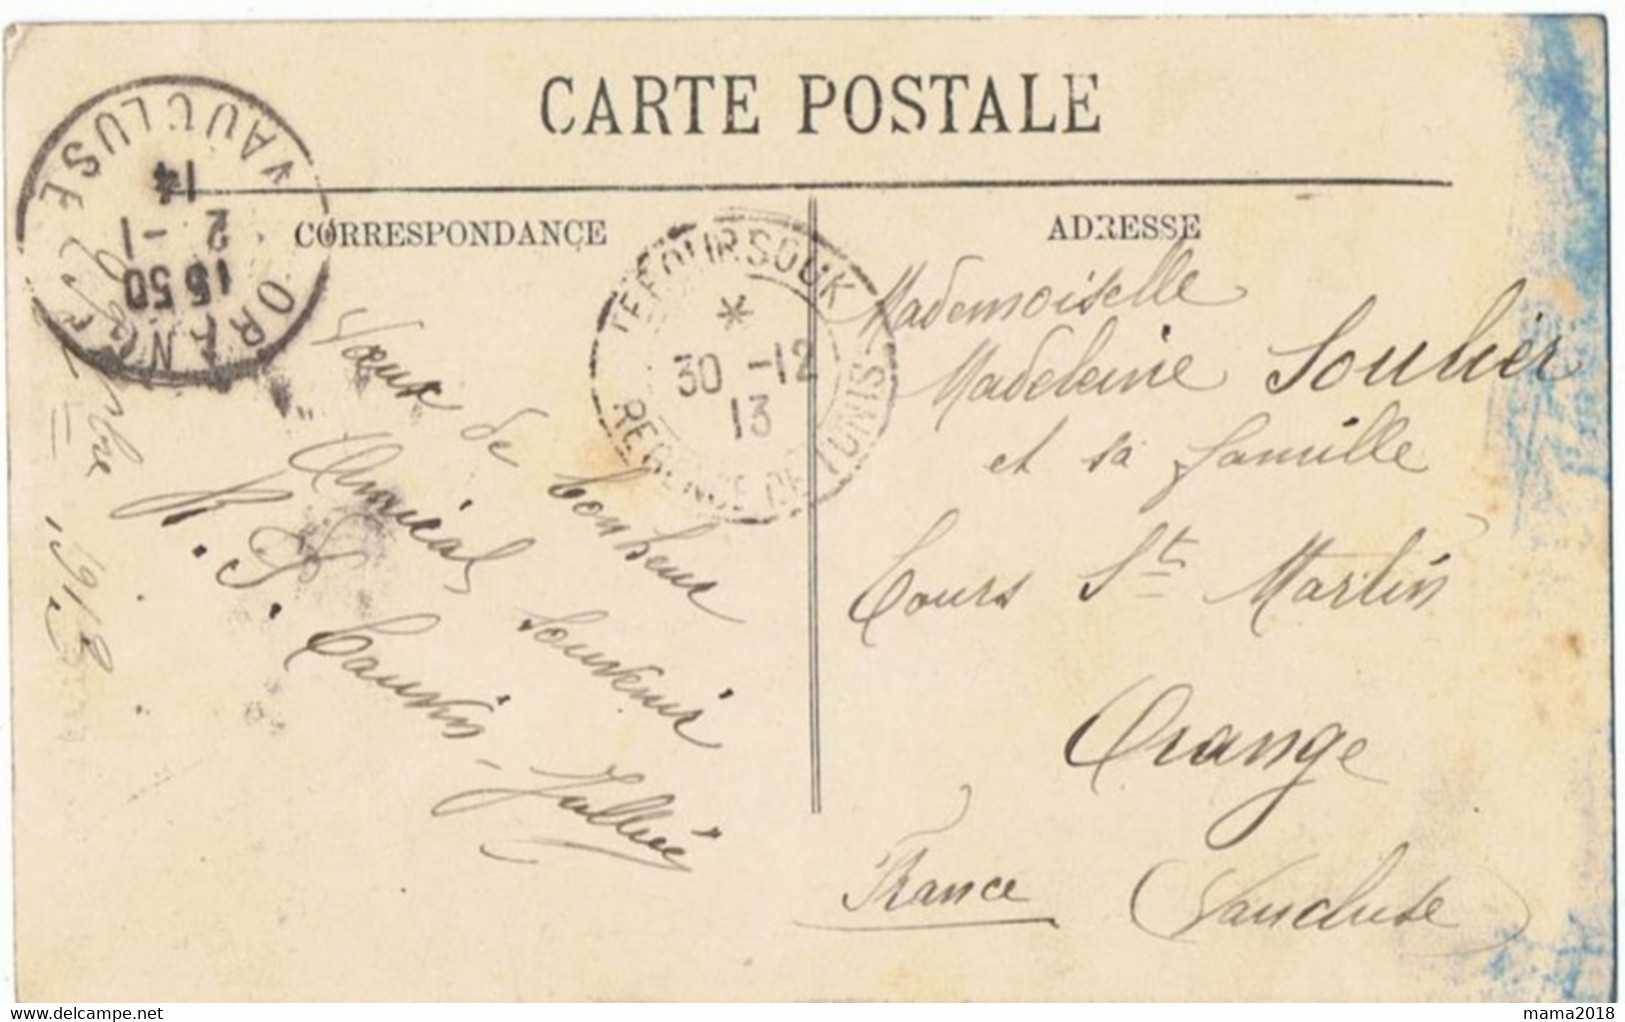 CARTE POSTALE
CORRESPONDANCE
ADRESSE
ORANGE
VAUCLUSE
15 50
2 -1
14
TEBOURSOUK
*
30 -12
13
REGENCE DE TUNIS
1913
Vœux de bonheur
Amical souvenir
Mademoiselle
Madeleine Soulier
et sa famille
Cours St Martin
Orange
France (Vaucluse)
delcampe.net
mama2018